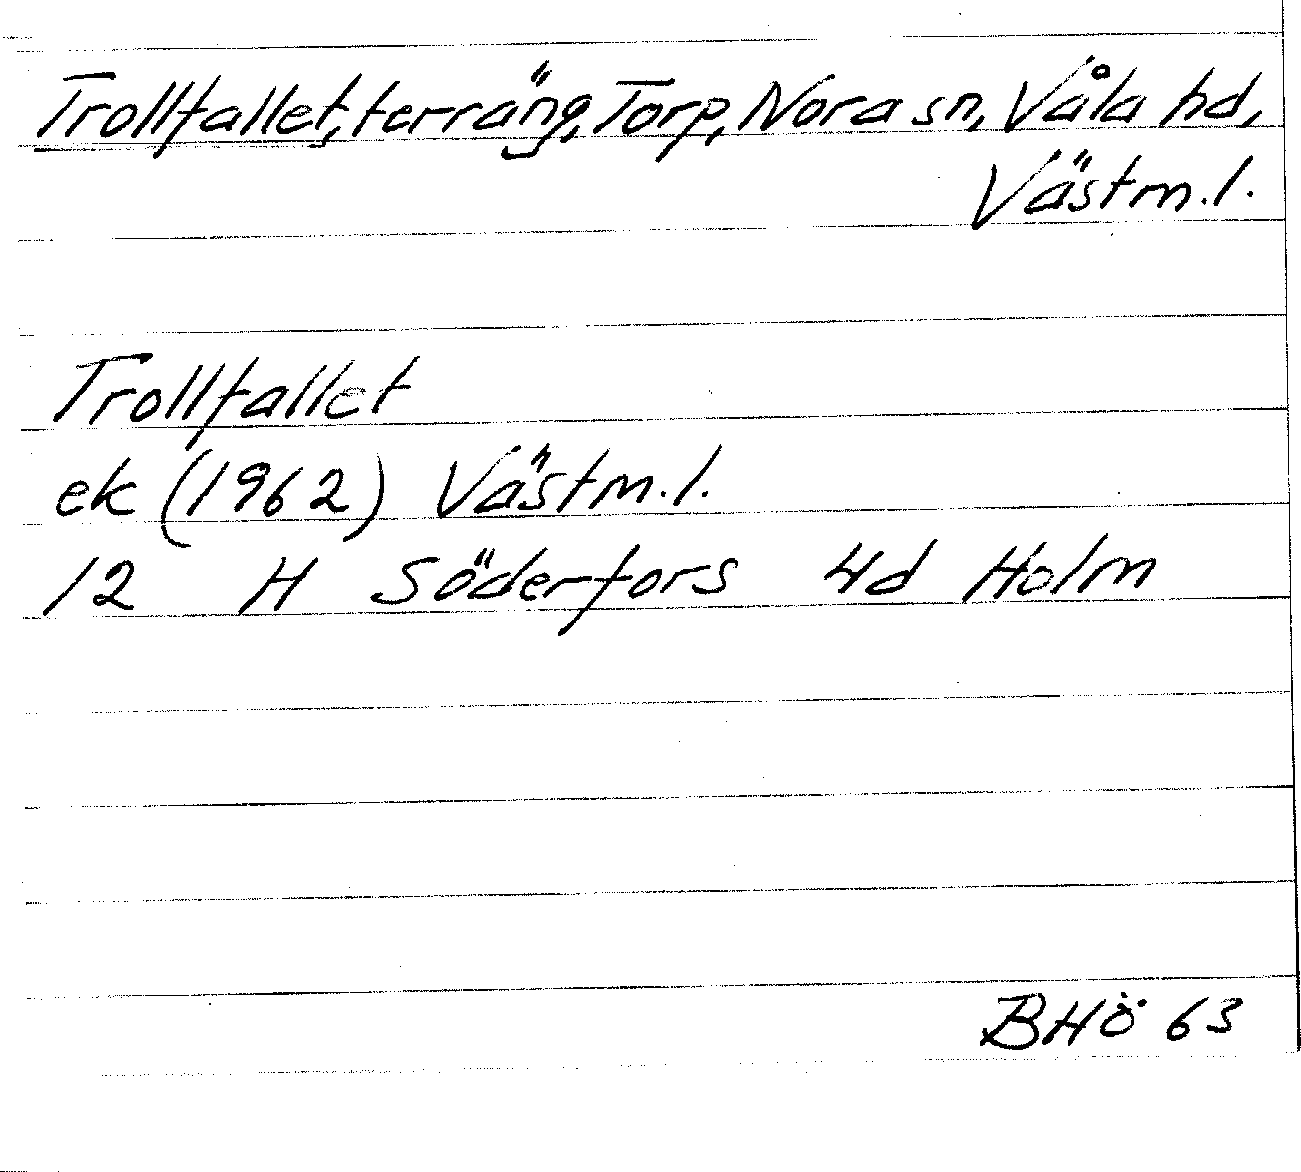 Trollfallet, terräng, Torp, Nora sn, Våla hd,
Västm.l.
Trollfallet
ek (1962) Västm.l.
12 H Söderfors 4d Holm
BHö 63